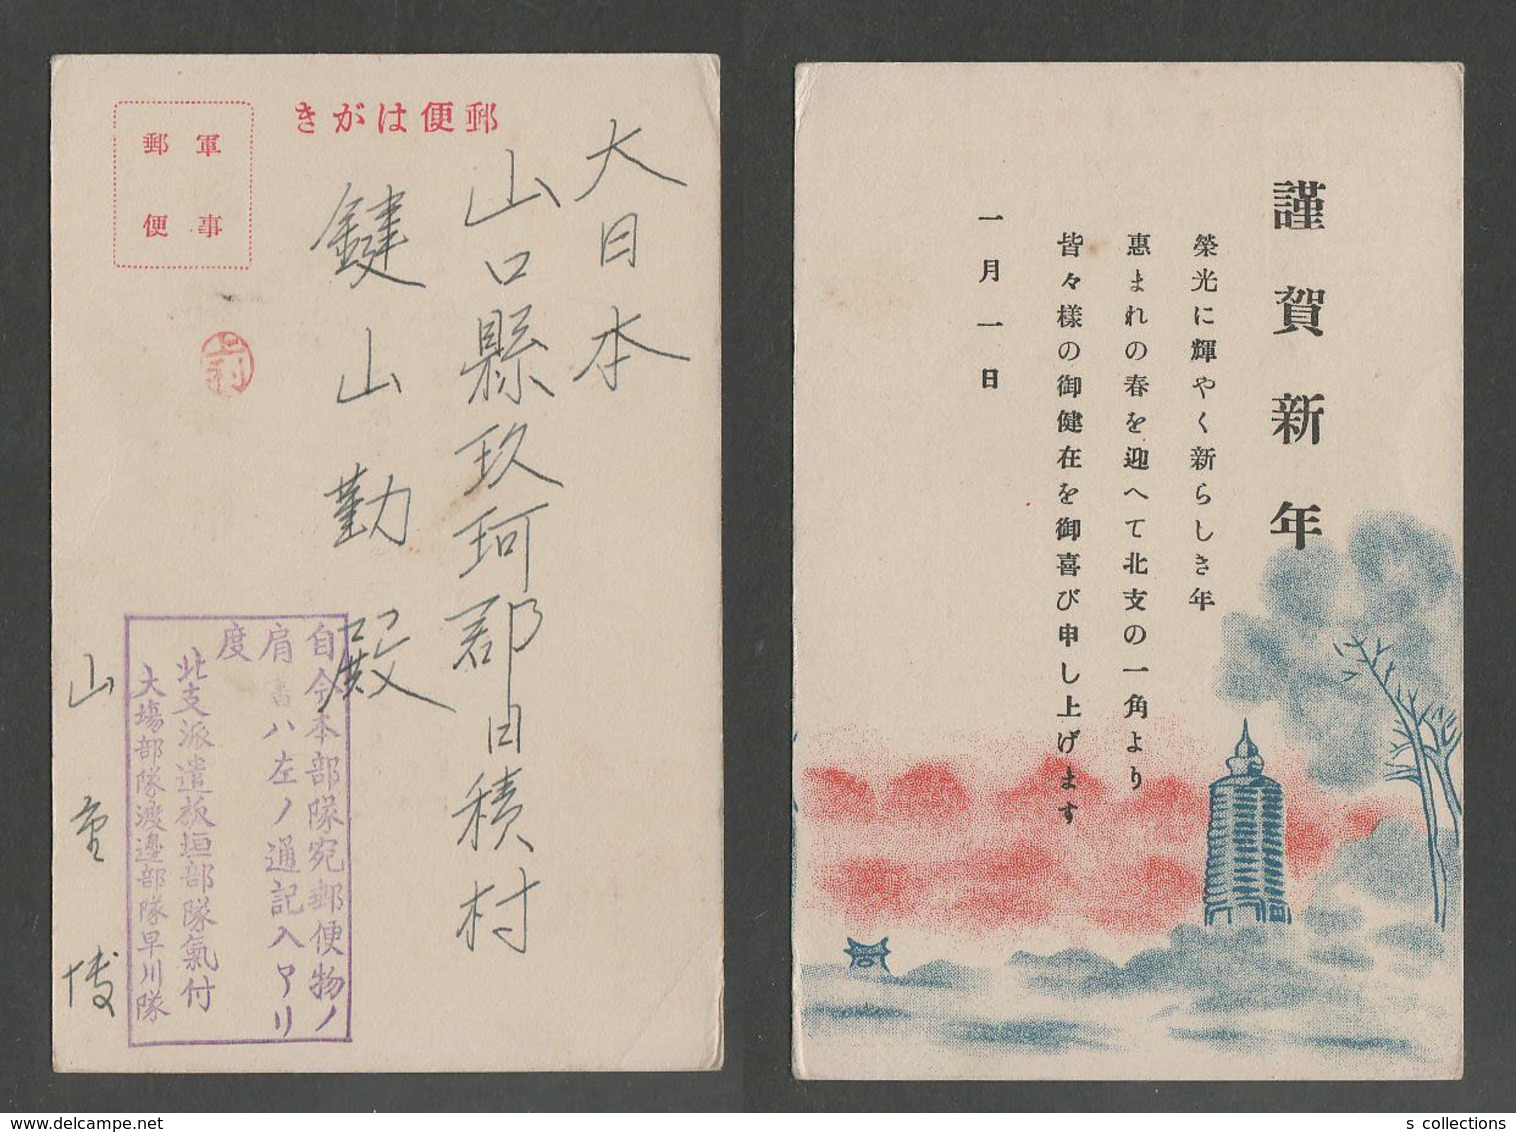 郵便はがき
軍事
郵便
大日本
山口縣玖珂郡日積村
鍵山勤殿
自今本部隊宛郵便物ノ
肩書ハ左ノ通記入アリ
度
北支派遣板垣部隊氣付
大場部隊渡邊部隊早川隊
山重 博
謹賀新年
榮光に輝やく新らしき年
惠まれの春を迎へて北支の一角より
皆々様の御健在を御喜び申し上げます
一月一日
s collections